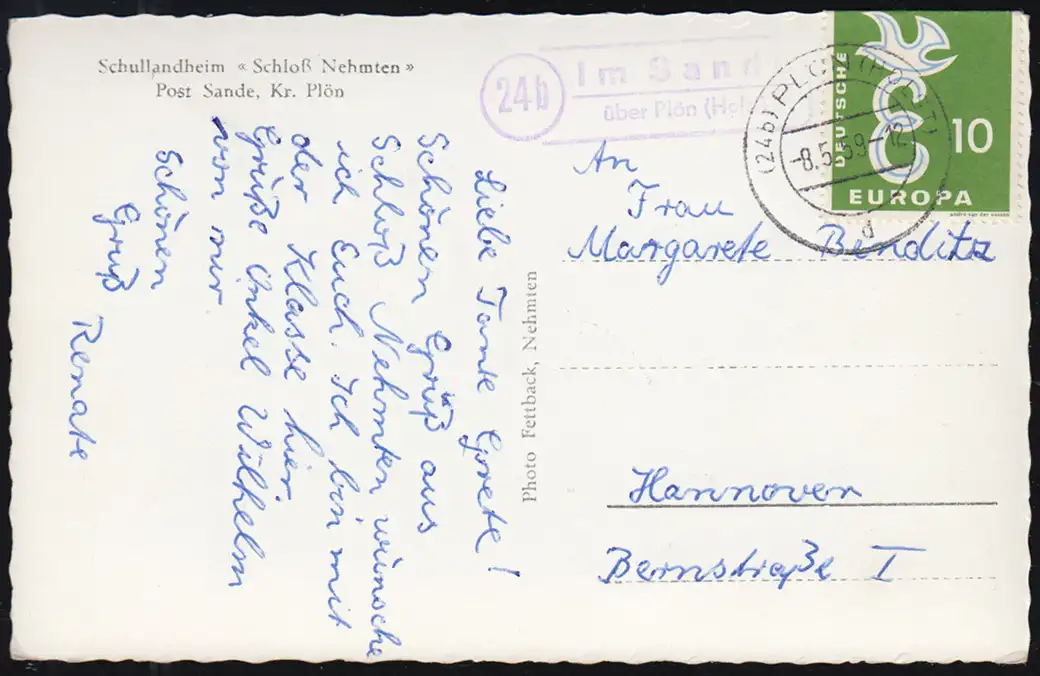 Schullandheim « Schloß Nehmten »
Post Sande, Kr. Plön
24b
Im Sand
über Plön (Hols
(24b) PLÖN (HOLST)
-8.5.59-12
d
DEUTSCHE
10
EUROPA
andré van der vossen
Liebe Tante Grete!
Schönen Gruß aus
Schloß Nehmten wünsche
ich Euch. Ich bin mit
der Klasse hier.
Grüße Onkel Wilhelm
von mir.
Schönen
Gruß
Renate
Photo Fettback, Nehmten
An
Frau
Margarete Benditz
Hannover
Bernstraße I